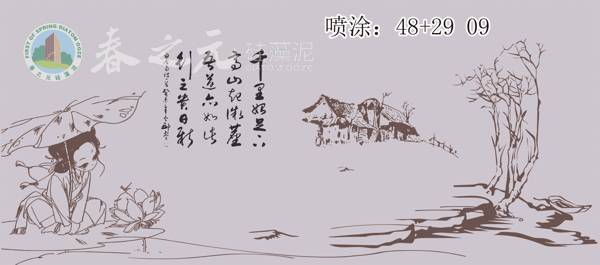 喷涂：48+29 09
FIRST OF SPRING DIATOM OOZE
春之元硅藻泥
春之元 硅藻泥
千里始足下
高山起微尘
吾道亦如此
行之贵日新